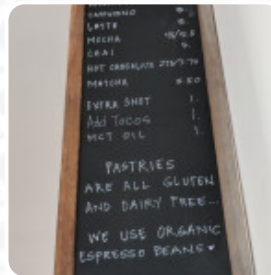 CAPPUCCINO
LATTE
MOCHA
CHAI
HOT CHOCOLATE
MATCHA
EXTRA SHOT 1.
Add Tocos 1.
MCT OIL 1.
PASTRIES
ARE ALL GLUTEN
AND DAIRY FREE...
WE USE ORGANIC
ESPRESSO BEANS ♥